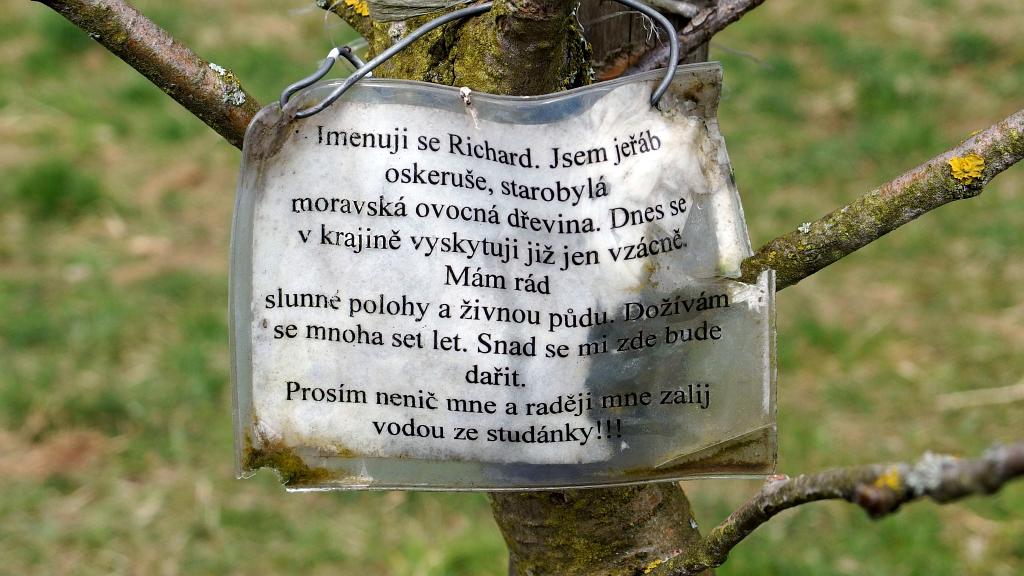 Jmenuji se Richard. Jsem jeřáb
oskeruše, starobylá
moravská ovocná dřevina. Dnes se
v krajině vyskytuji již jen vzácně.
Mám rád
slunné polohy a živnou půdu. Dožívám
se mnoha set let. Snad se mi zde bude
dařit.
Prosím nenič mne a raději mne zalij
vodou ze studánky!!!